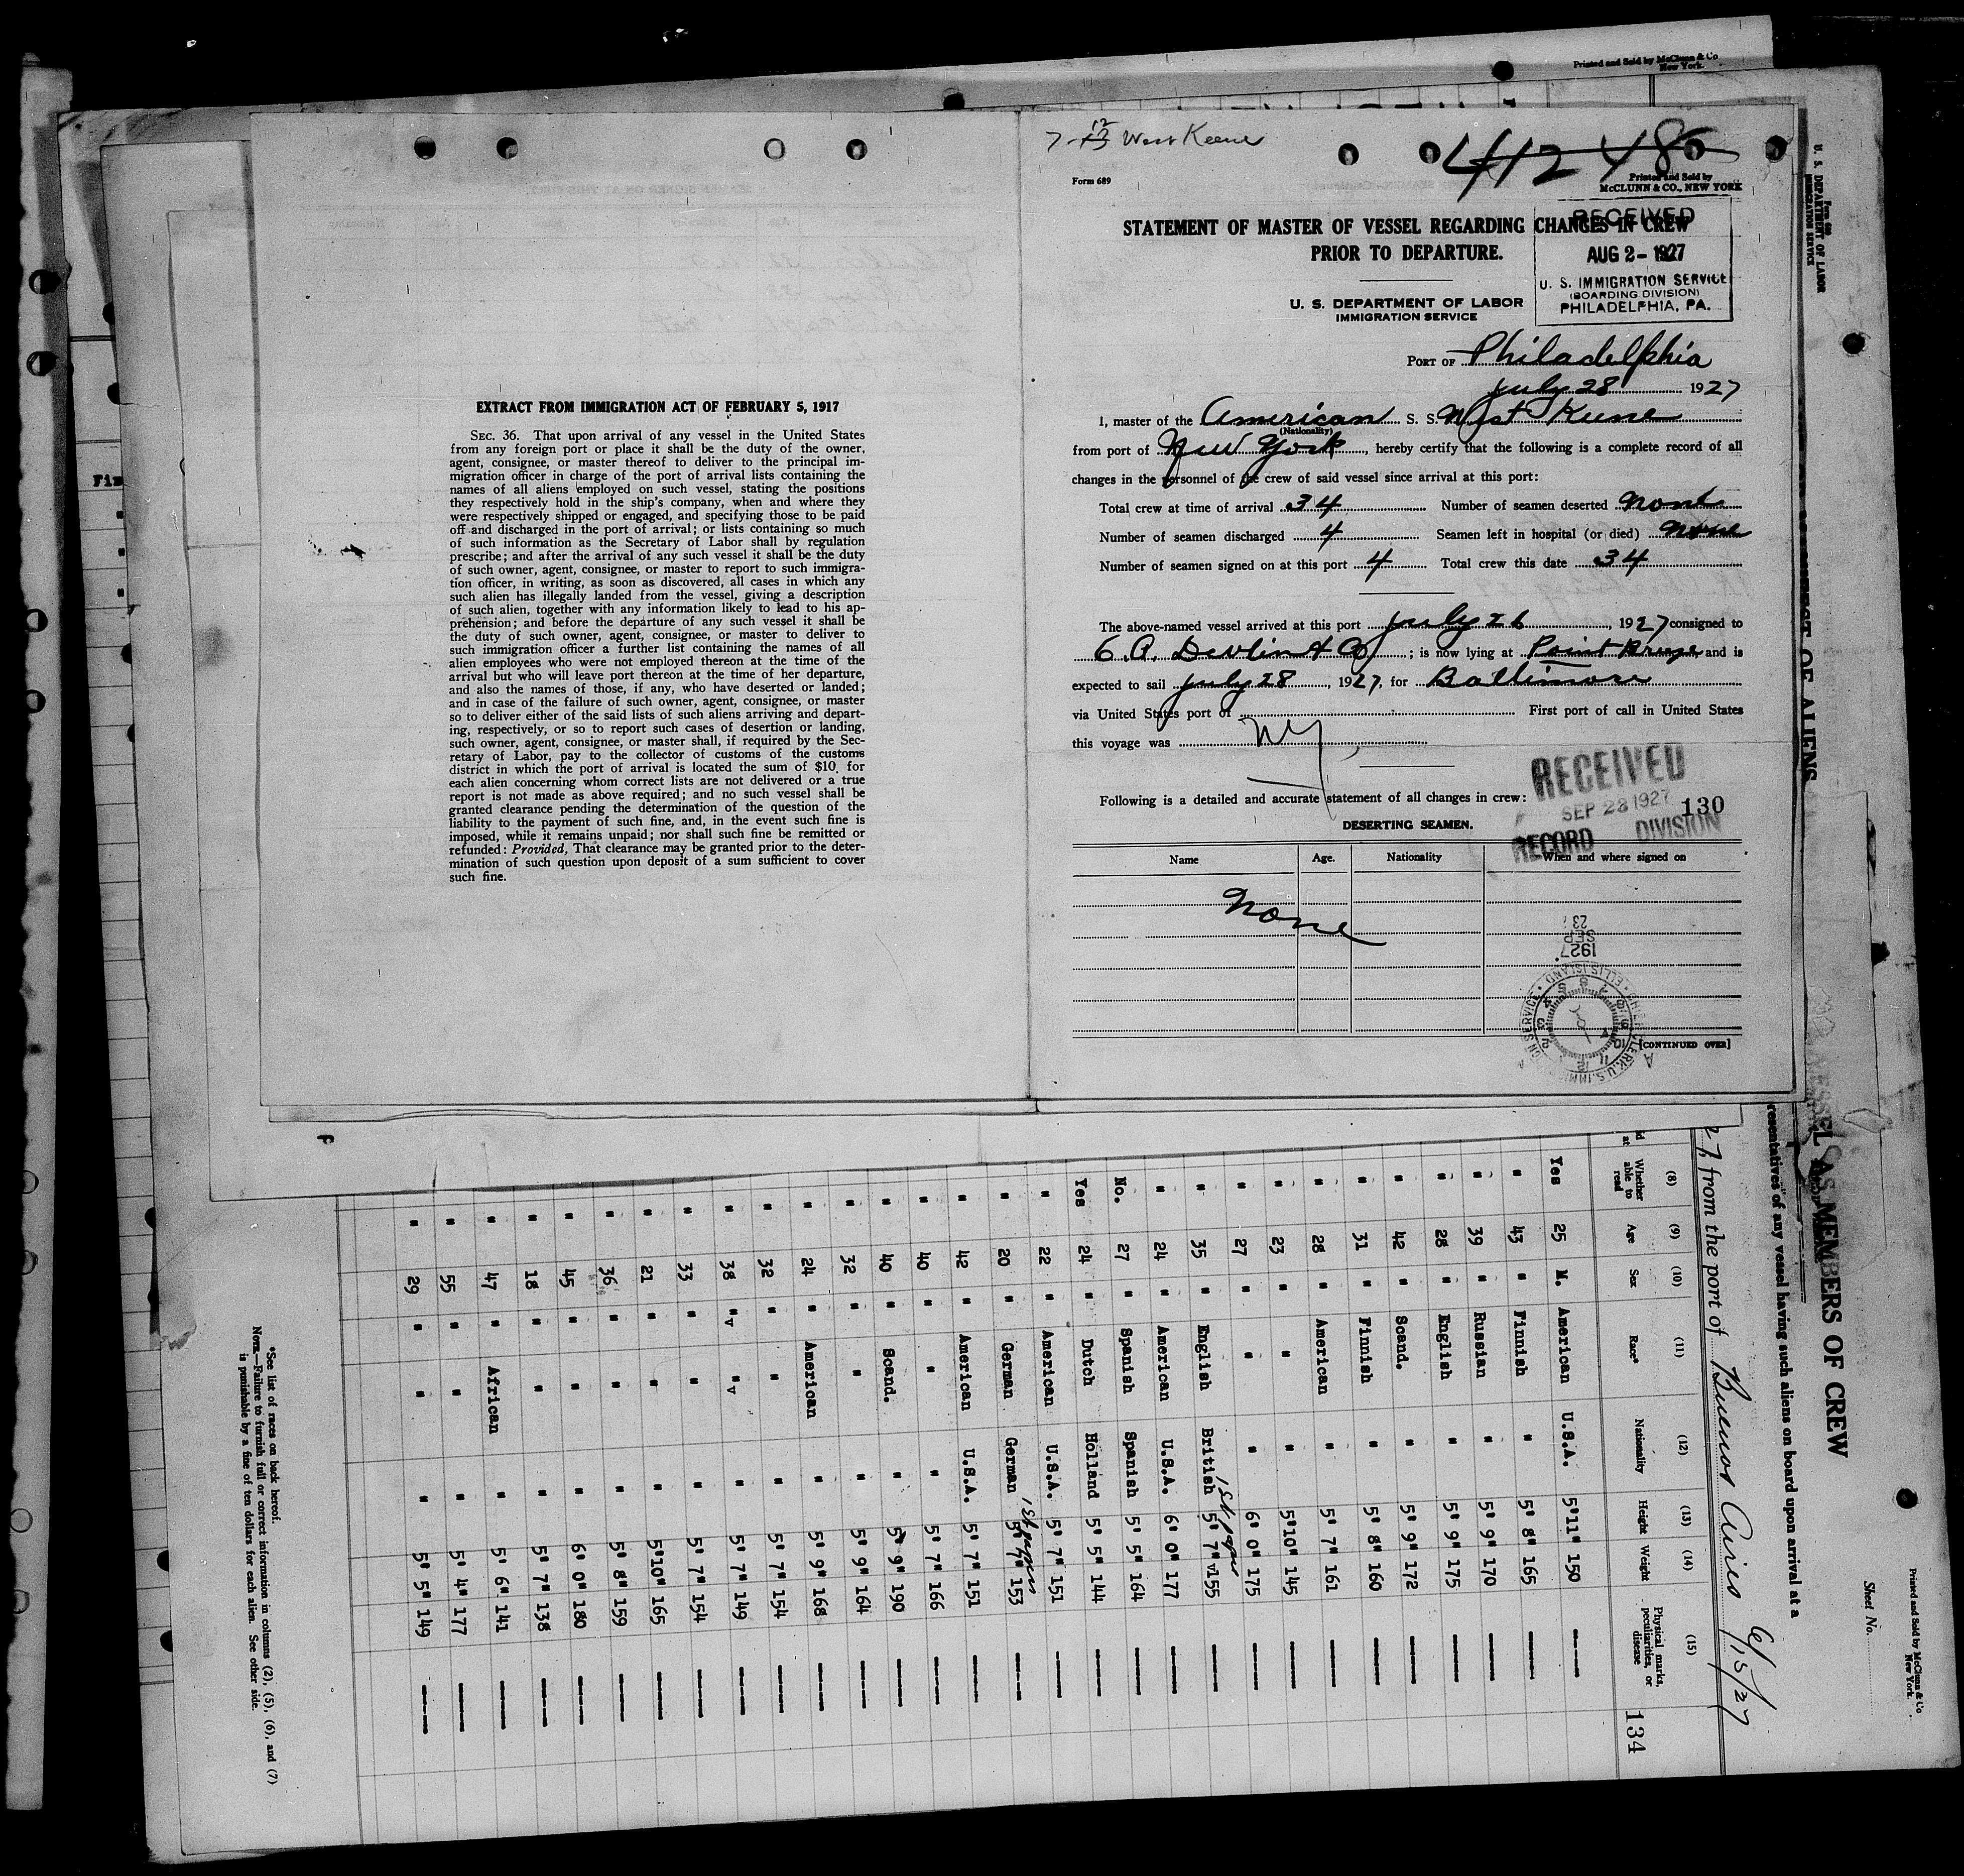 Printed and Sold by McClunn & Co
New York.
EXTRACT FROM IMMIGRATION ACT OF FEBRUARY 5, 1917
SEC. 36. That upon arrival of any vessel in the United States
from any foreign port or place it shall be the duty of the owner,
agent, consignee, or master thereof to deliver to the principal im-
migration officer in charge of the port of arrival lists containing the
names of all aliens employed on such vessel, stating the positions
they respectively hold in the ship's company, when and where they
were respectively shipped or engaged, and specifying those to be paid
off and discharged in the port of arrival; or lists containing so much
of such information as the Secretary of Labor shall by regulation
prescribe; and after the arrival of any such vessel it shall be the duty
of such owner, agent, consignee, or master to report to such immigra-
tion officer, in writing, as soon as discovered, all cases in which any
such alien has illegally landed from the vessel, giving a description
of such alien, together with any information likely to lead to his ap-
prehension; and before the departure of any such vessel it shall be
the duty of such owner, agent, consignee, or master to deliver to
such immigration officer a further list containing the names of all
alien employees who were not employed thereon at the time of the
arrival but who will leave port thereon at the time of her departure,
and also the names of those, if any, who have deserted or landed;
and in case of the failure of such owner, agent, consignee, or master
so to deliver either of the said lists of such aliens arriving and depart-
ing, respectively, or so to report such cases of desertion or landing,
such owner, agent, consignee, or master shall, if required by the Sec-
retary of Labor, pay to the collector of customs of the customs
district in which the port of arrival is located the sum of $10 for
each alien concerning whom correct lists are not delivered or a true
report is not made as above required; and no such vessel shall be
granted clearance pending the determination of the question of the
liability to the payment of such fine, and, in the event such fine is
imposed, while it remains unpaid; nor shall such fine be remitted or
refunded: Provided, That clearance may be granted prior to the deter-
mination of such question upon deposit of a sum sufficient to cover
such fine.
7-12 West Keene
412 48
Form 689
Printed and Sold by
McCLUNN & CO., NEW YORK
STATEMENT OF MASTER OF VESSEL REGARDING CHANGES IN CREW
PRIOR TO DEPARTURE.
RECEIVED
AUG 2 - 1927
U. S. IMMIGRATION SERVICE
(BOARDING DIVISION)
PHILADELPHIA, PA.
U. S. DEPARTMENT OF LABOR
IMMIGRATION SERVICE
PORT OF Philadelphia
July 28 1927
I, master of the American S. S. West Keene
(Nationality)
from port of New York, hereby certify that the following is a complete record of all
changes in the personnel of the crew of said vessel since arrival at this port:
Total crew at time of arrival 34 Number of seamen deserted None
Number of seamen discharged 4 Seamen left in hospital (or died) None
Number of seamen signed on at this port 4 Total crew this date 34
The above-named vessel arrived at this port July 26, 1927 consigned to
Devlin & Co; is now lying at Point Breeze and is
expected to sail July 28, 1927, for Baltimore
via United States port of First port of call in United States
this voyage was NY
Following is a detailed and accurate statement of all changes in crew:
RECEIVED
SEP 28 1927
RECORD DIVISION
130
DESERTING SEAMEN.
Name Age. Nationality When and where signed on
None
1927
SEP
23
[CONTINUED OVER]
Form 689
U. S. DEPARTMENT OF LABOR
IMMIGRATION SERVICE
Printed and Sold by McClunn & Co
New York.
Sheet No.
AS MEMBERS OF CREW
resentatives of any vessel having such aliens on board upon arrival at a
27, from the port of Buenos Aires 6/15/27
134
(8) (9) (10) (11) (12) (13) (14) (15)
Whether able to read Age Sex Race* Nationality Height Weight Physical marks, peculiarities, or disease
Yes 25 M. American U.S.A. 5'11" 150
" 43 " Finnish " 5' 8" 165
" 39 " Russian " 5' 9" 170
" 28 " English " 5' 9" 175
" 42 " Scand. " 5' 9" 172
" 31 " Finnish " 5' 8" 160
" 28 " American " 5' 7" 161
" 23 " " " 5'10" 145
" 27 " " " 6' 0" 175
1st paper
" 35 " English British 5' 7" 155
" 24 " American U.S.A. 6' 0" 177
No. 27 " Spanish Spanish 5' 5" 164
Yes 24 " Dutch Holland 5' 5" 144
" 22 " American U.S.A. 5' 7" 151
1st papers
" 20 " German German 5' 7" 153
" 42 " American U.S.A. 5' 7" 151
" 40 " " " 5' 7" 166
" 40 " Scand. " 5' 9" 190
" 32 " " " 5' 9" 164
" 24 " American " 5' 9" 168
" 32 " " " 5' 7" 154
" 38 " " " 5' 7" 149
" 33 " " " 5' 7" 154
" 21 " " " 5'10" 165
" 36 " " " 5' 8" 159
" 45 " " " 6' 0" 180
" 18 " " " 5' 7" 138
" 47 " African " 5' 6" 141
" 55 " " " 5' 4" 177
" 29 " " " 5' 5" 149
*See list of races on back hereof.
NOTE.—Failure to furnish full or correct information in columns (2), (5), (6), and (7)
is punishable by a fine of ten dollars for each alien. See other side.